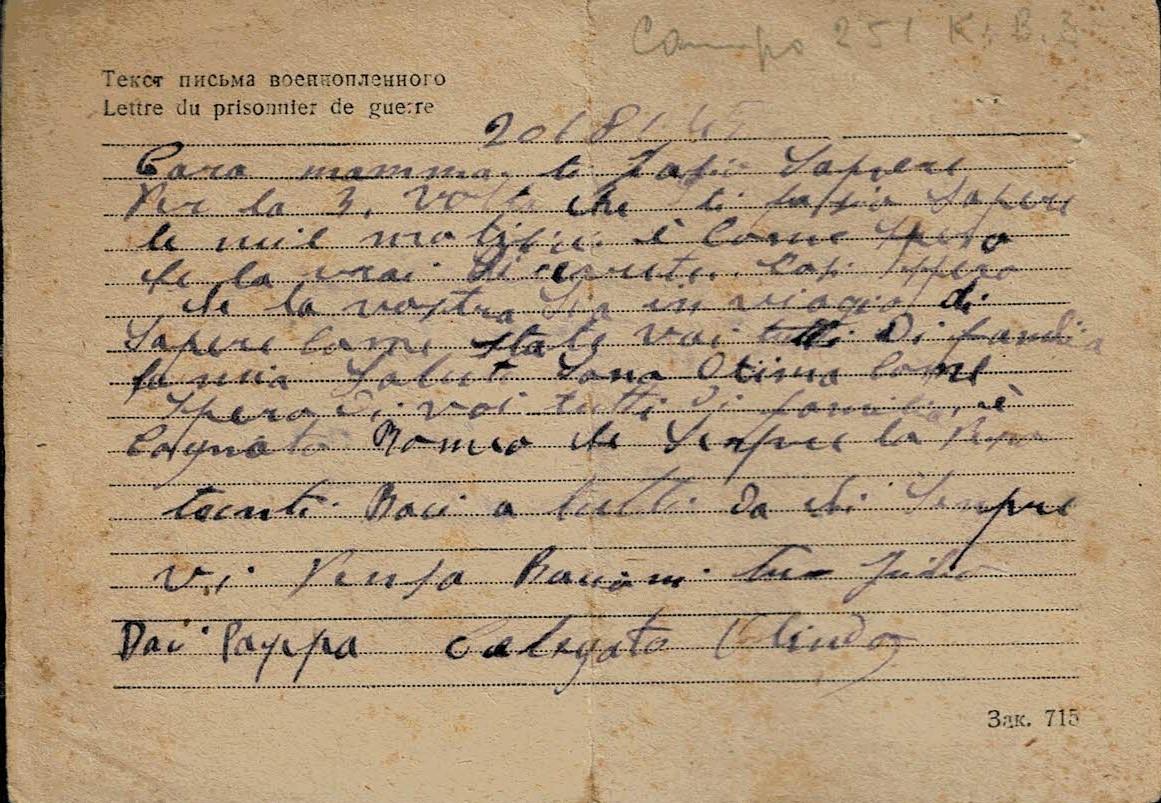 Campo 251 K. B. 3
Текст письма военнопленного
Lettre du prisonnier de guerre
20/8/45
Cara mamma. ti fasio Sapere
Per la 3. Volta che ti fasio Sapere
le mie notisie è Come Spero
de la vrai Ricevute. Cosi Spero
de la vostra Sia in viagio di
Sapere Come state voi tutti Di
la mia Salute Sono Otima Come
Spero Di voi tutti Di familia, è
Cognato Romeo de Senpre la
tanti Baci a tutti Da chi Senpre
vi Pensa Bacioni tuo
Pappa Calegato Olindo
Зак. 715